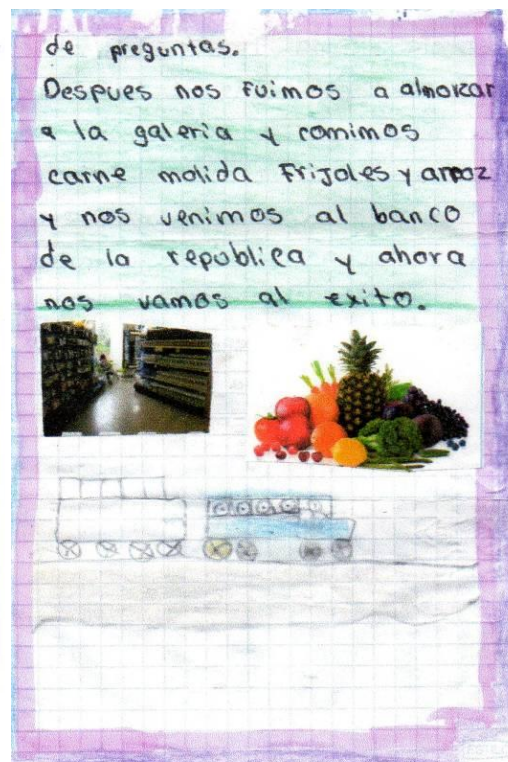 de preguntas.
Despues nos fuimos a almorzar
a la galeria y comimos
carne molida Frijoles y arroz
y nos venimos al banco
de la republica y ahora
nos vamos al exito.